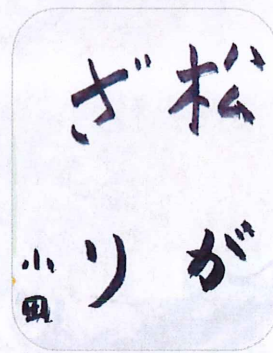 松が
ざり
小田